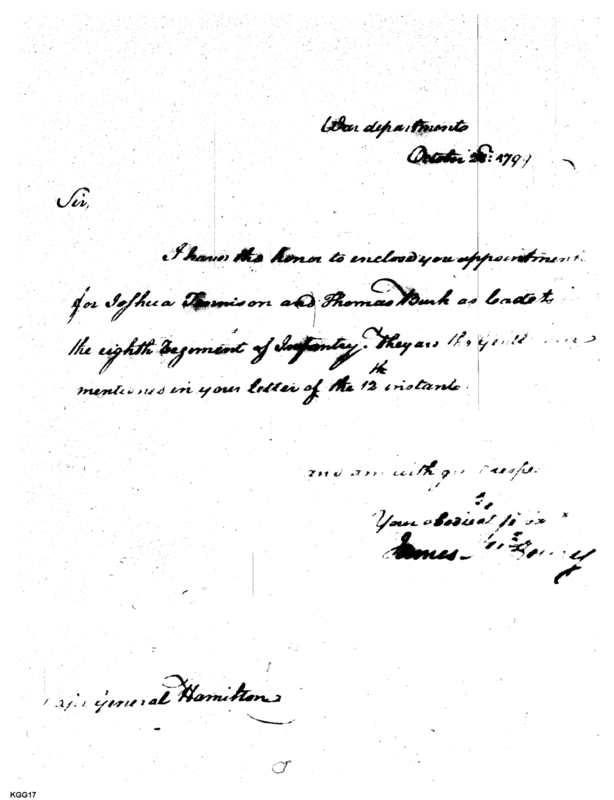 War department
October 1799
Sir,
I have the honor to enclose you appointment
for Joshua and Thomas Burk as Cadets
the eighth Regiment of Infantry. They are the
mentioned in your letter of the 12th instant
and am with
Your obedient
James
General Hamilton
KGG17